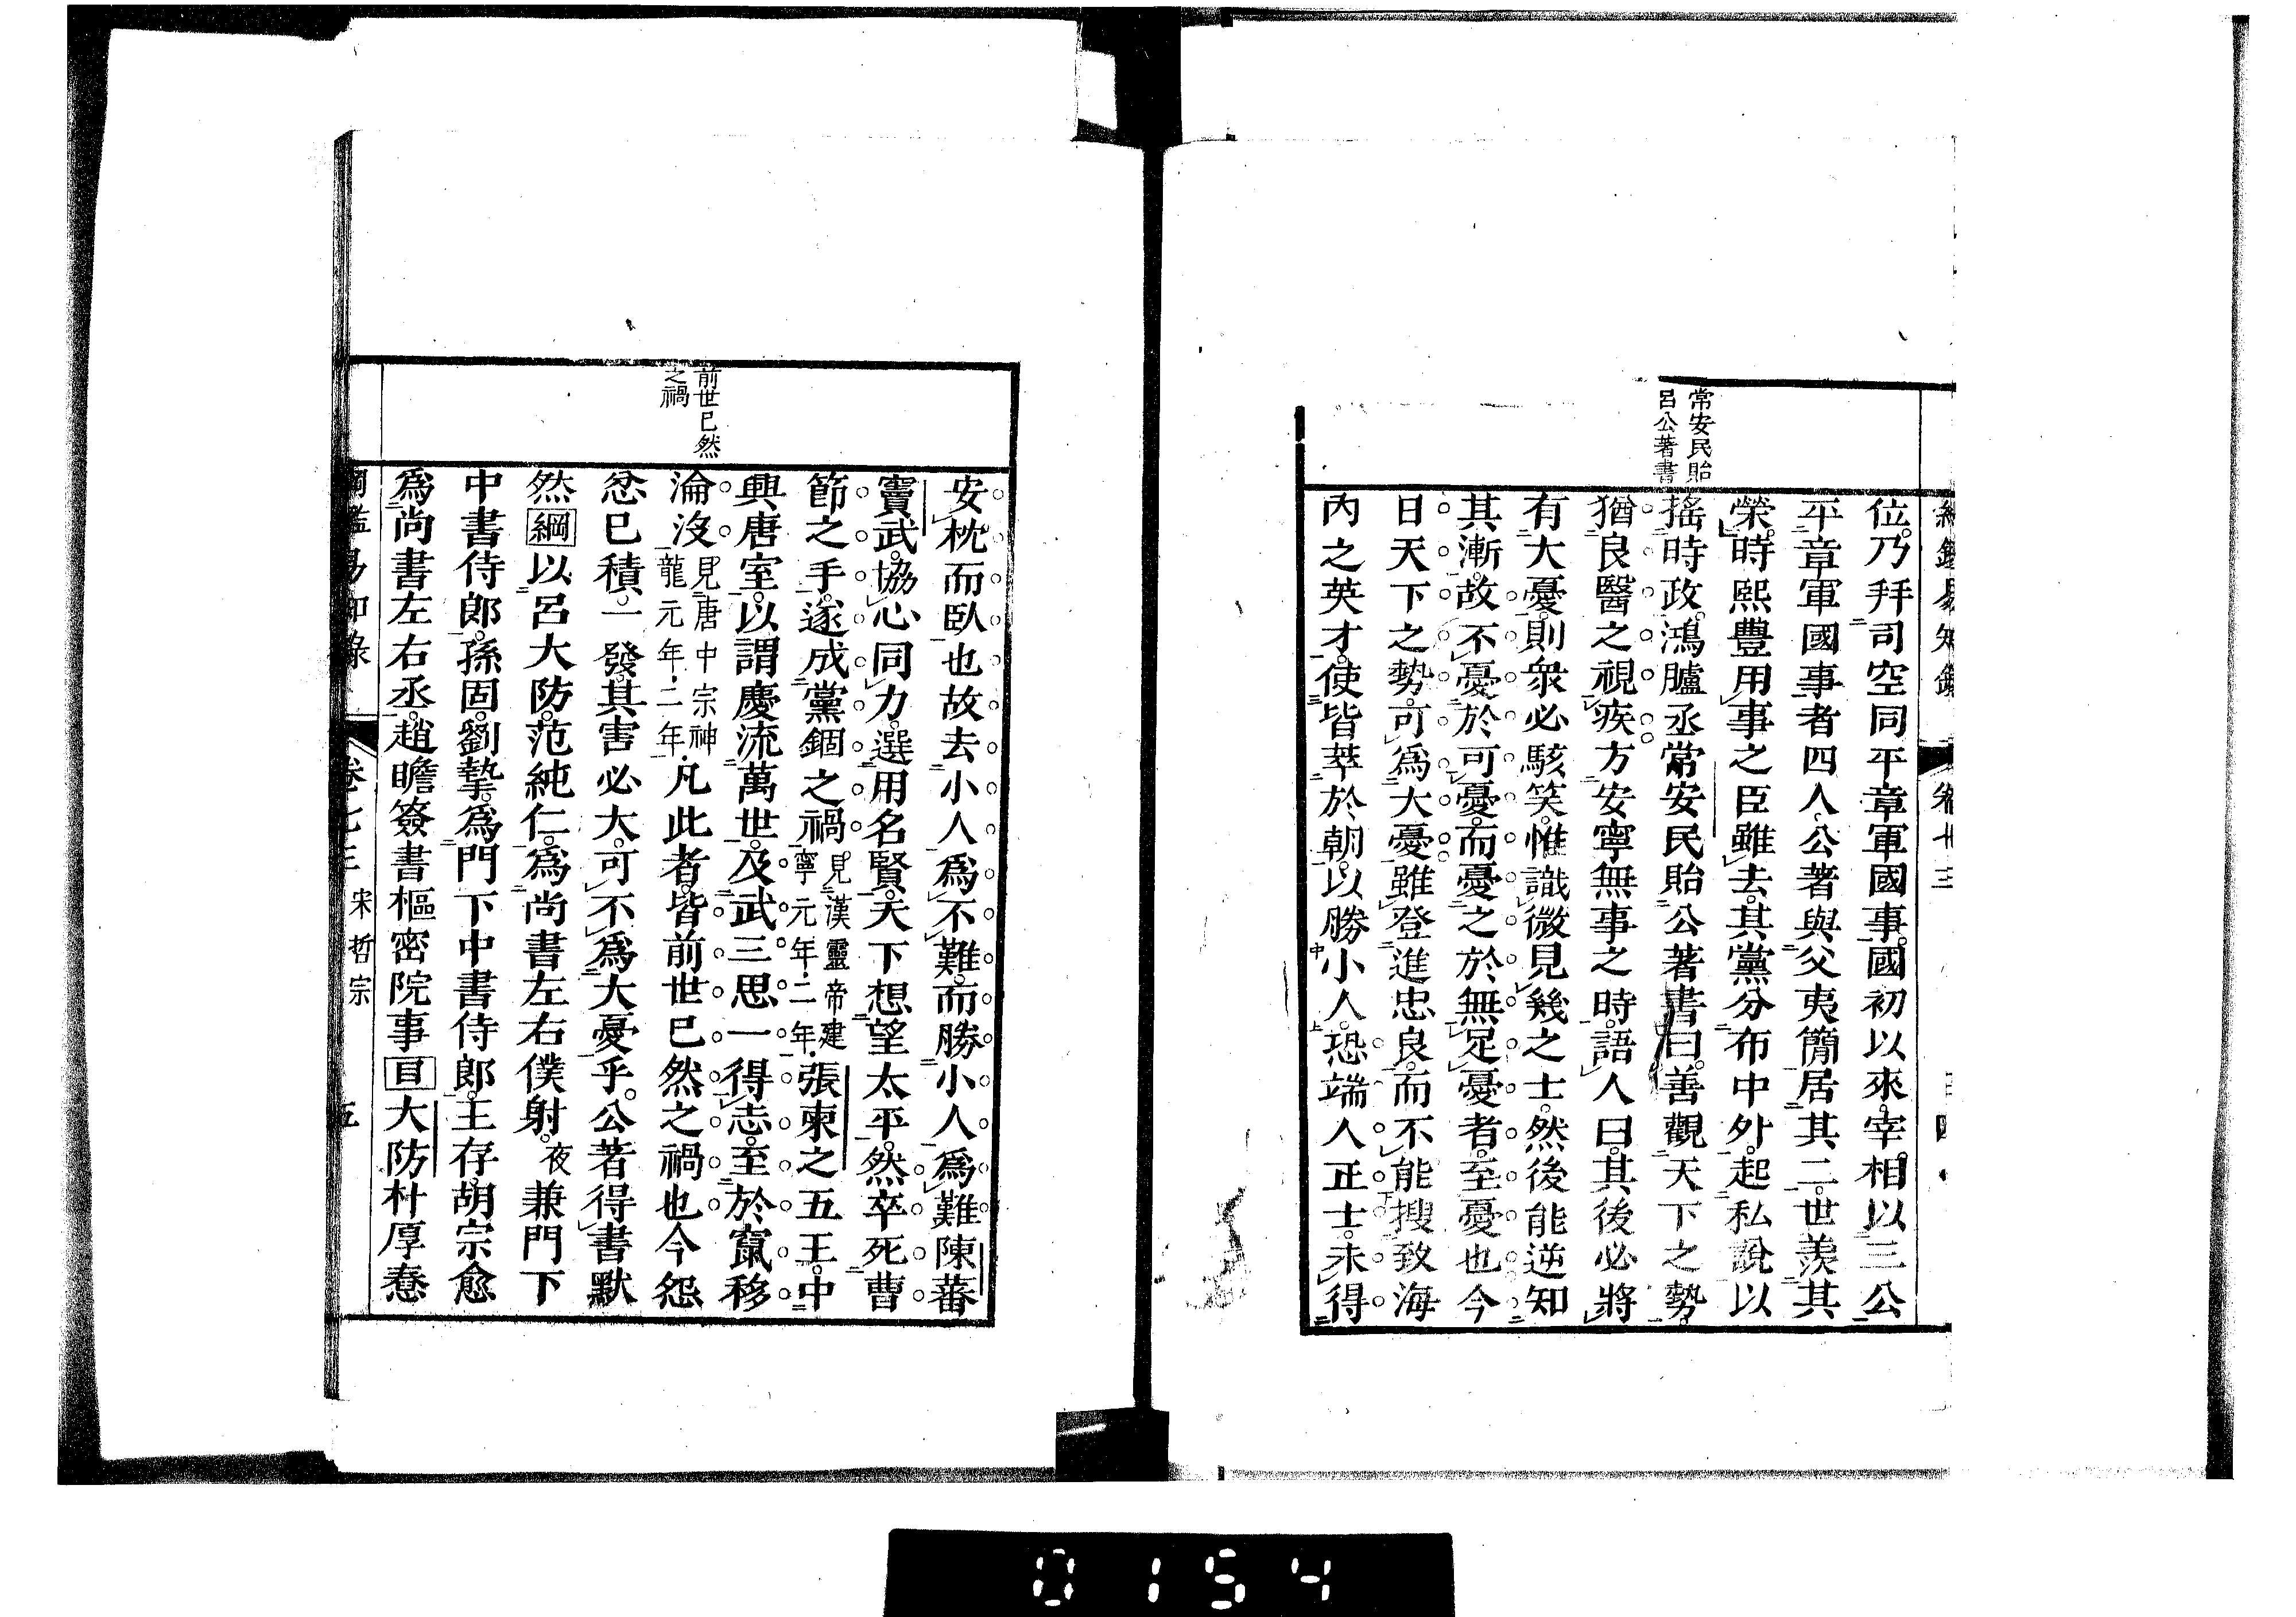 常安民貽
呂公著書
位。乃拜司空同平章軍國事。國初以來。宰相以三公
平章軍國事者四人。公著與父夷簡居其二。世羨其
榮。時熙豐用事之臣雖去。其黨分布中外。起私說以
搖時政。鴻臚丞常安民貽公著書曰。善觀天下之勢。
猶良醫之視疾。方安寧無事之時。語人曰。其後必將
有大憂。則衆必駭笑。惟識微見幾之士。然後能逆知
其漸。故不憂於可憂。而憂之於無足憂者。至憂也今
日天下之勢。可爲大憂。雖登進忠良。而不能搜致海
內之英才。使皆萃於朝。以勝小人。恐端人正士。未得
前世已然
之禍
安枕而臥也故去小人爲不難。而勝小人爲難陳蕃
竇武。協心同力。選用名賢。天下想望太平。然卒死曹
節之手。遂成黨錮之禍。見漢靈帝建寧元年二年。張柬之五王。中
興唐室。以謂慶流萬世。及武三思一得志。至於竄移
淪沒。見唐中宗神龍元年二年。凡此者。皆前世已然之禍也今怨
忿已積。一發。其害必大。可不爲大憂乎。公著得書默
然綱以呂大防。范純仁。爲尚書左右僕射。夜兼門下
中書侍郎。孫固。劉摯。爲門下中書侍郎。王存。胡宗愈
爲尚書左右丞。趙瞻簽書樞密院事目大防朴厚惷
卷七三 宋哲宗 五